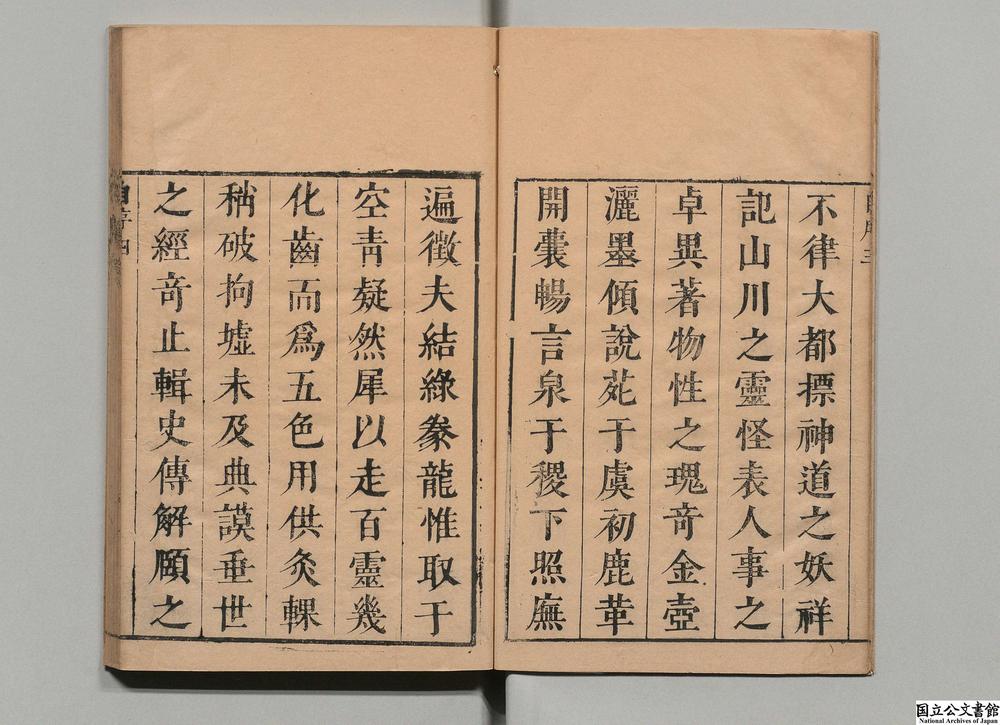 不律大都摽神道之妖祥
記山川之靈怪表人事之
卓異著物性之瑰奇金壺
灑墨傾說苑于虞初鹿革
開囊暢言泉于稷下照廡
遍徵夫結綠豢龍惟取于
空青凝然犀以走百靈幾
化齒而爲五色用供炙輠
稍破拘墟未及典謨垂世
之經奇止輯史傳解頤之
自序四
国立公文書館
National Archives of Japan